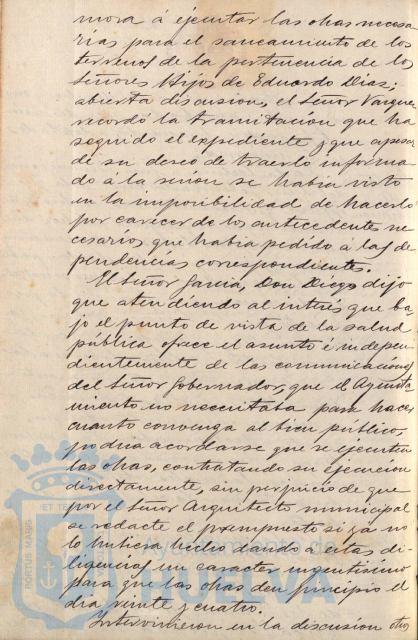 mora á ejecutar las obras necesa
rias para el saneamiento de los
terrenos de la pertenencia de los
Señores Hijos de Eduardo Diaz;
abierta discusion, el Señor Vazque
recordó la tramitacion que ha
seguido el expediente y que apesar
de su deseo de traerlo informa
do á la sesion se habia visto
en la imposibilidad de hacerlo
por carecer de los antecedentes ne
cesarios que habia pedido á las de
pendencias correspondientes.
El Señor Garcia, Don Diego dijo
que atendiendo al interés que ba
jo el punto de vista de la salud
pública ofrece el asunto é indepen
dientemente de las comunicaciones
del Señor Gobernador, que el Ayunta
miento no necesitaba para hacer
cuanto convenga al bien publico,
podria acordarse que se ejecuten
las obras, contratando su ejecucion
directamente, sin perjuicio de que
por el Señor Arquitecto municipal
se redacte el presupuesto si ya no
lo hubiera hecho dando á estas di
ligencias un caracter urgentisimo
para que las obras den principio el
dia veinte y cuatro.
Intervinieron en la discusion otro
PORTUS MARIS
ET TE
Ayuntamiento de
HUELVA